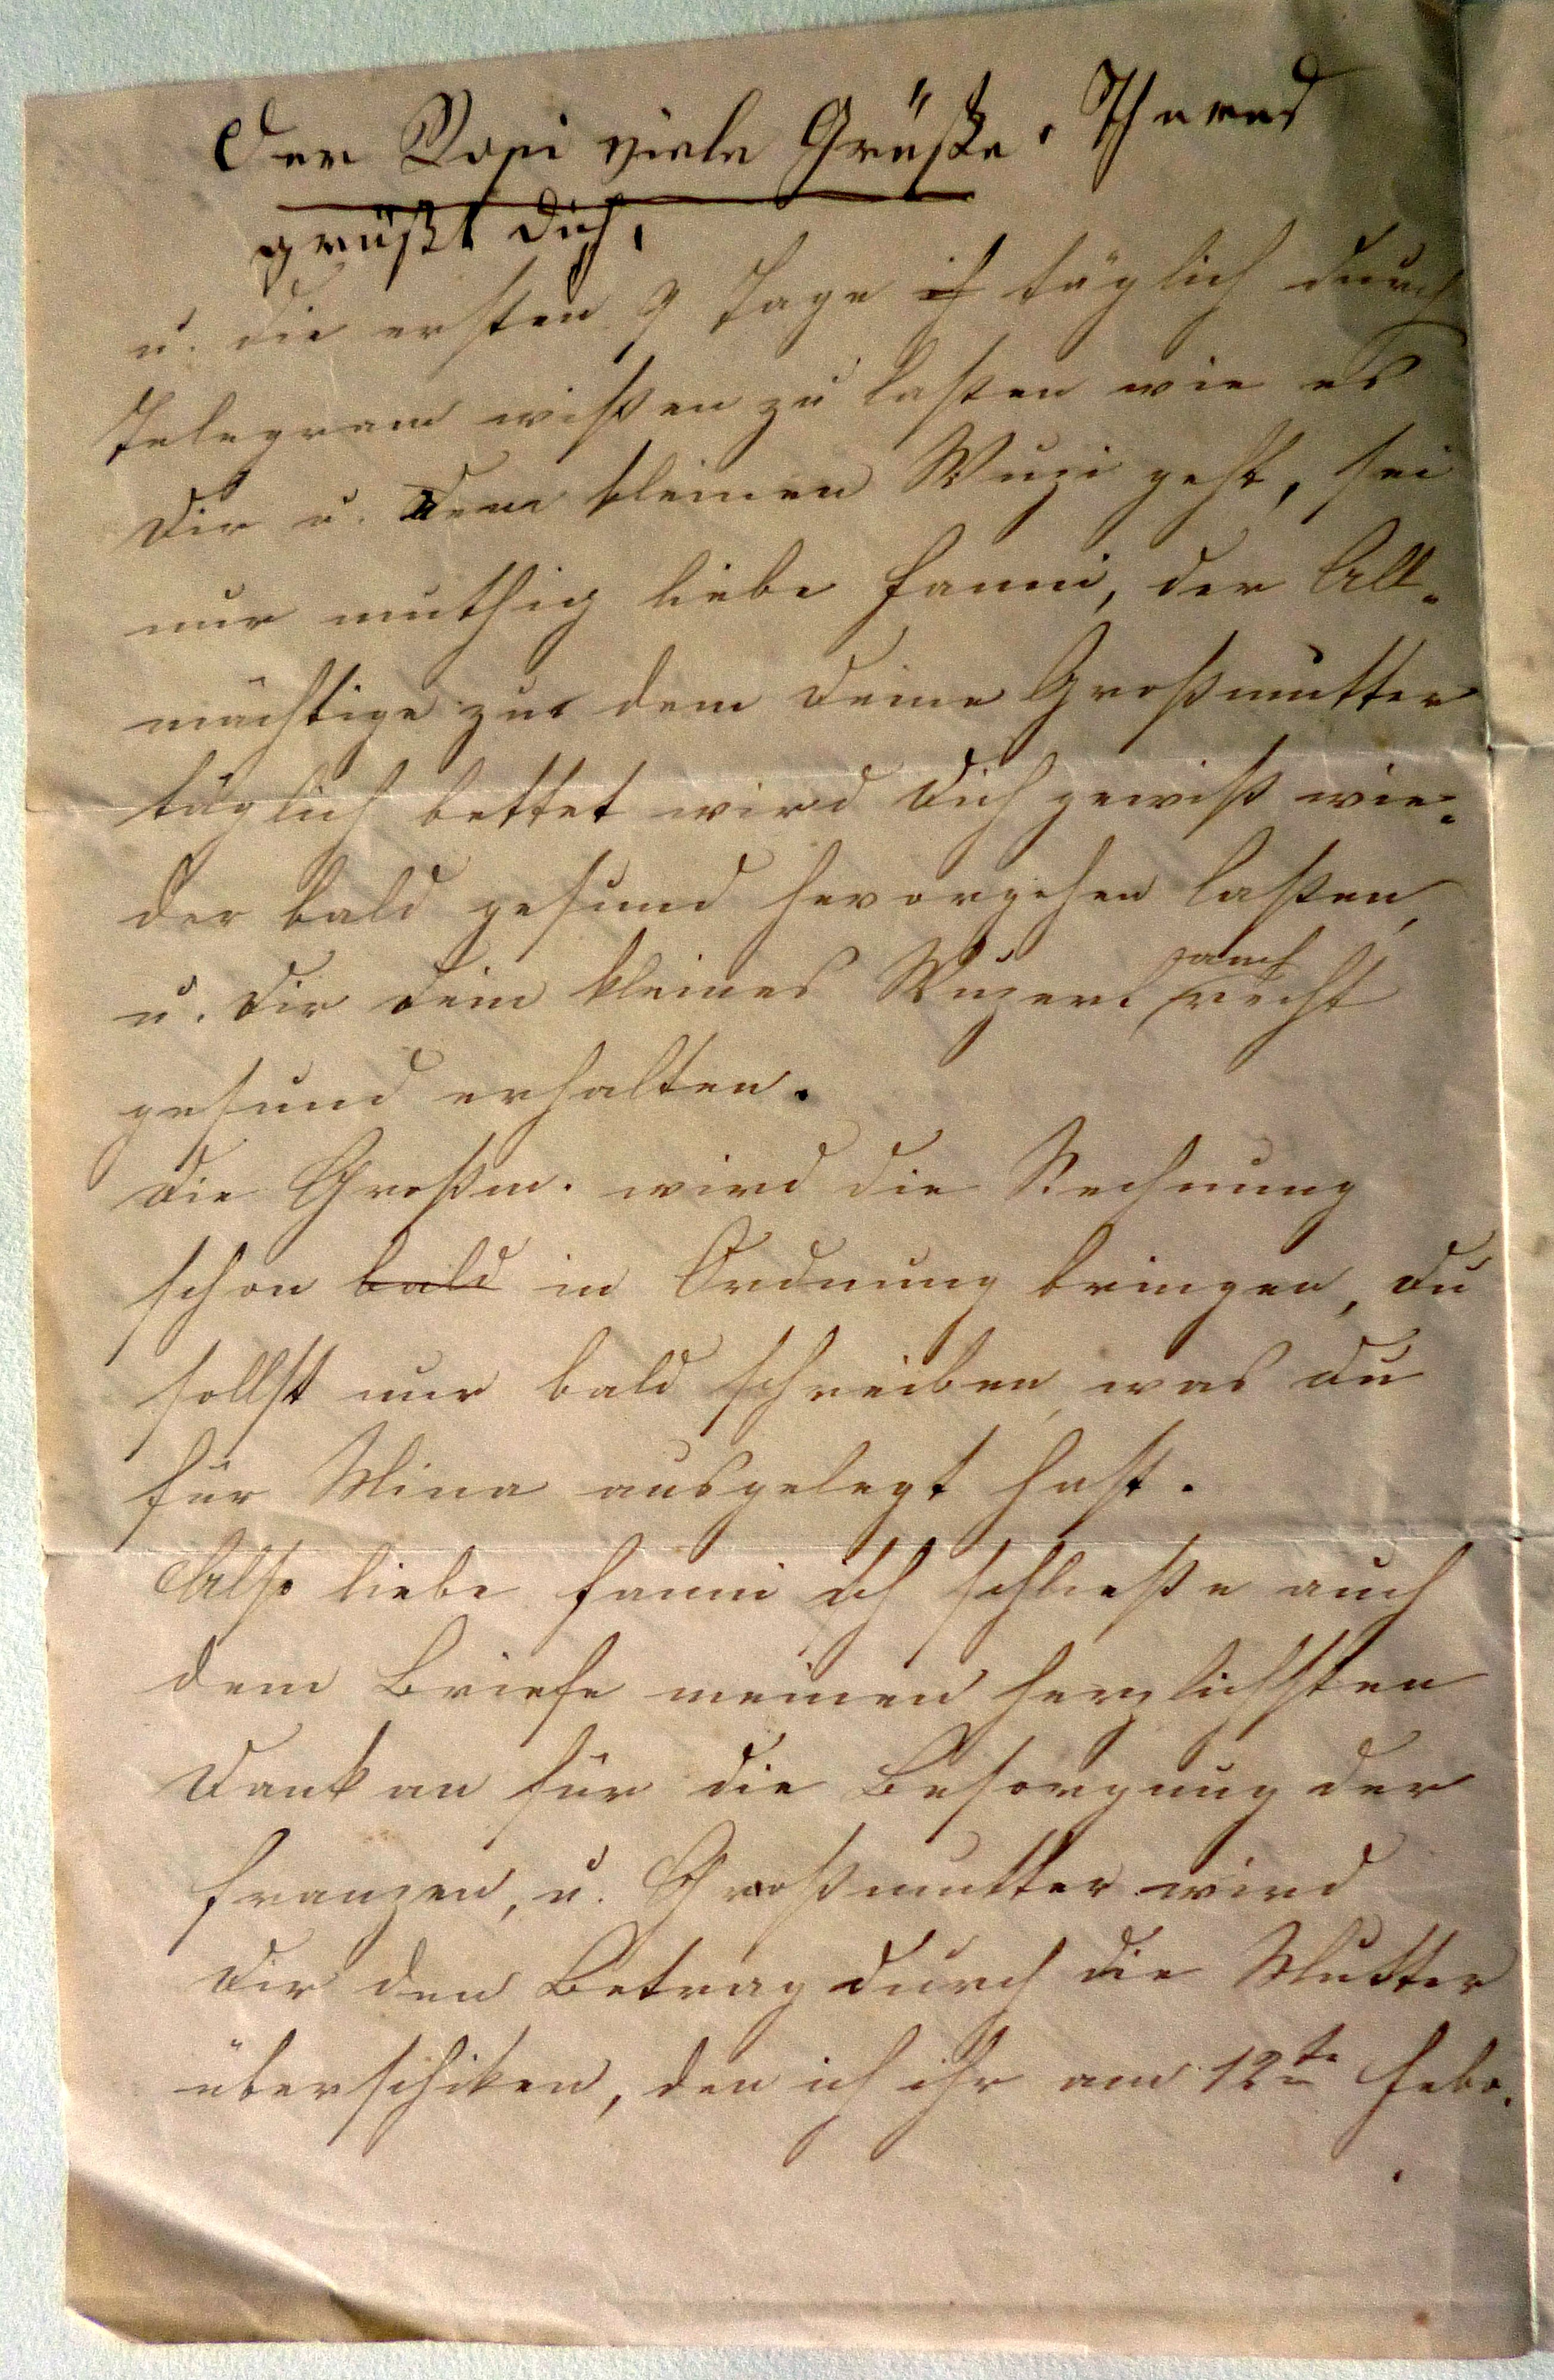 Der Rosi viele Grüße. Theres
grüßt dich,
u. die ersten 9 Tage ich täglich durch
Telegram wißen zu laßen wie es
dir u. dem kleinen Wuzi geht, sei
nur muthig liebe Fanni, der All-
mächtige zu dem deine Großmutter
täglich bettet wird dich gewiß wie-
der bald gesund hervorgehen laßen,
u. dir dein kleines Wuzerl auch recht
gesund erhalten.
Die Großm. wird die Rechnung
schon bald in Ordnung bringen, du
sollst nur bald schreiben was du
für Mina ausgelegt hast.
Also liebe Fanni ich schließe auch
dem Briefe meinen herzlichsten
Dank an für die Besorgung der
Franzen, u. Großmutter wird
dir den Betrag durch die Mutter
überschiken, den ich ihr am 12te Febr.